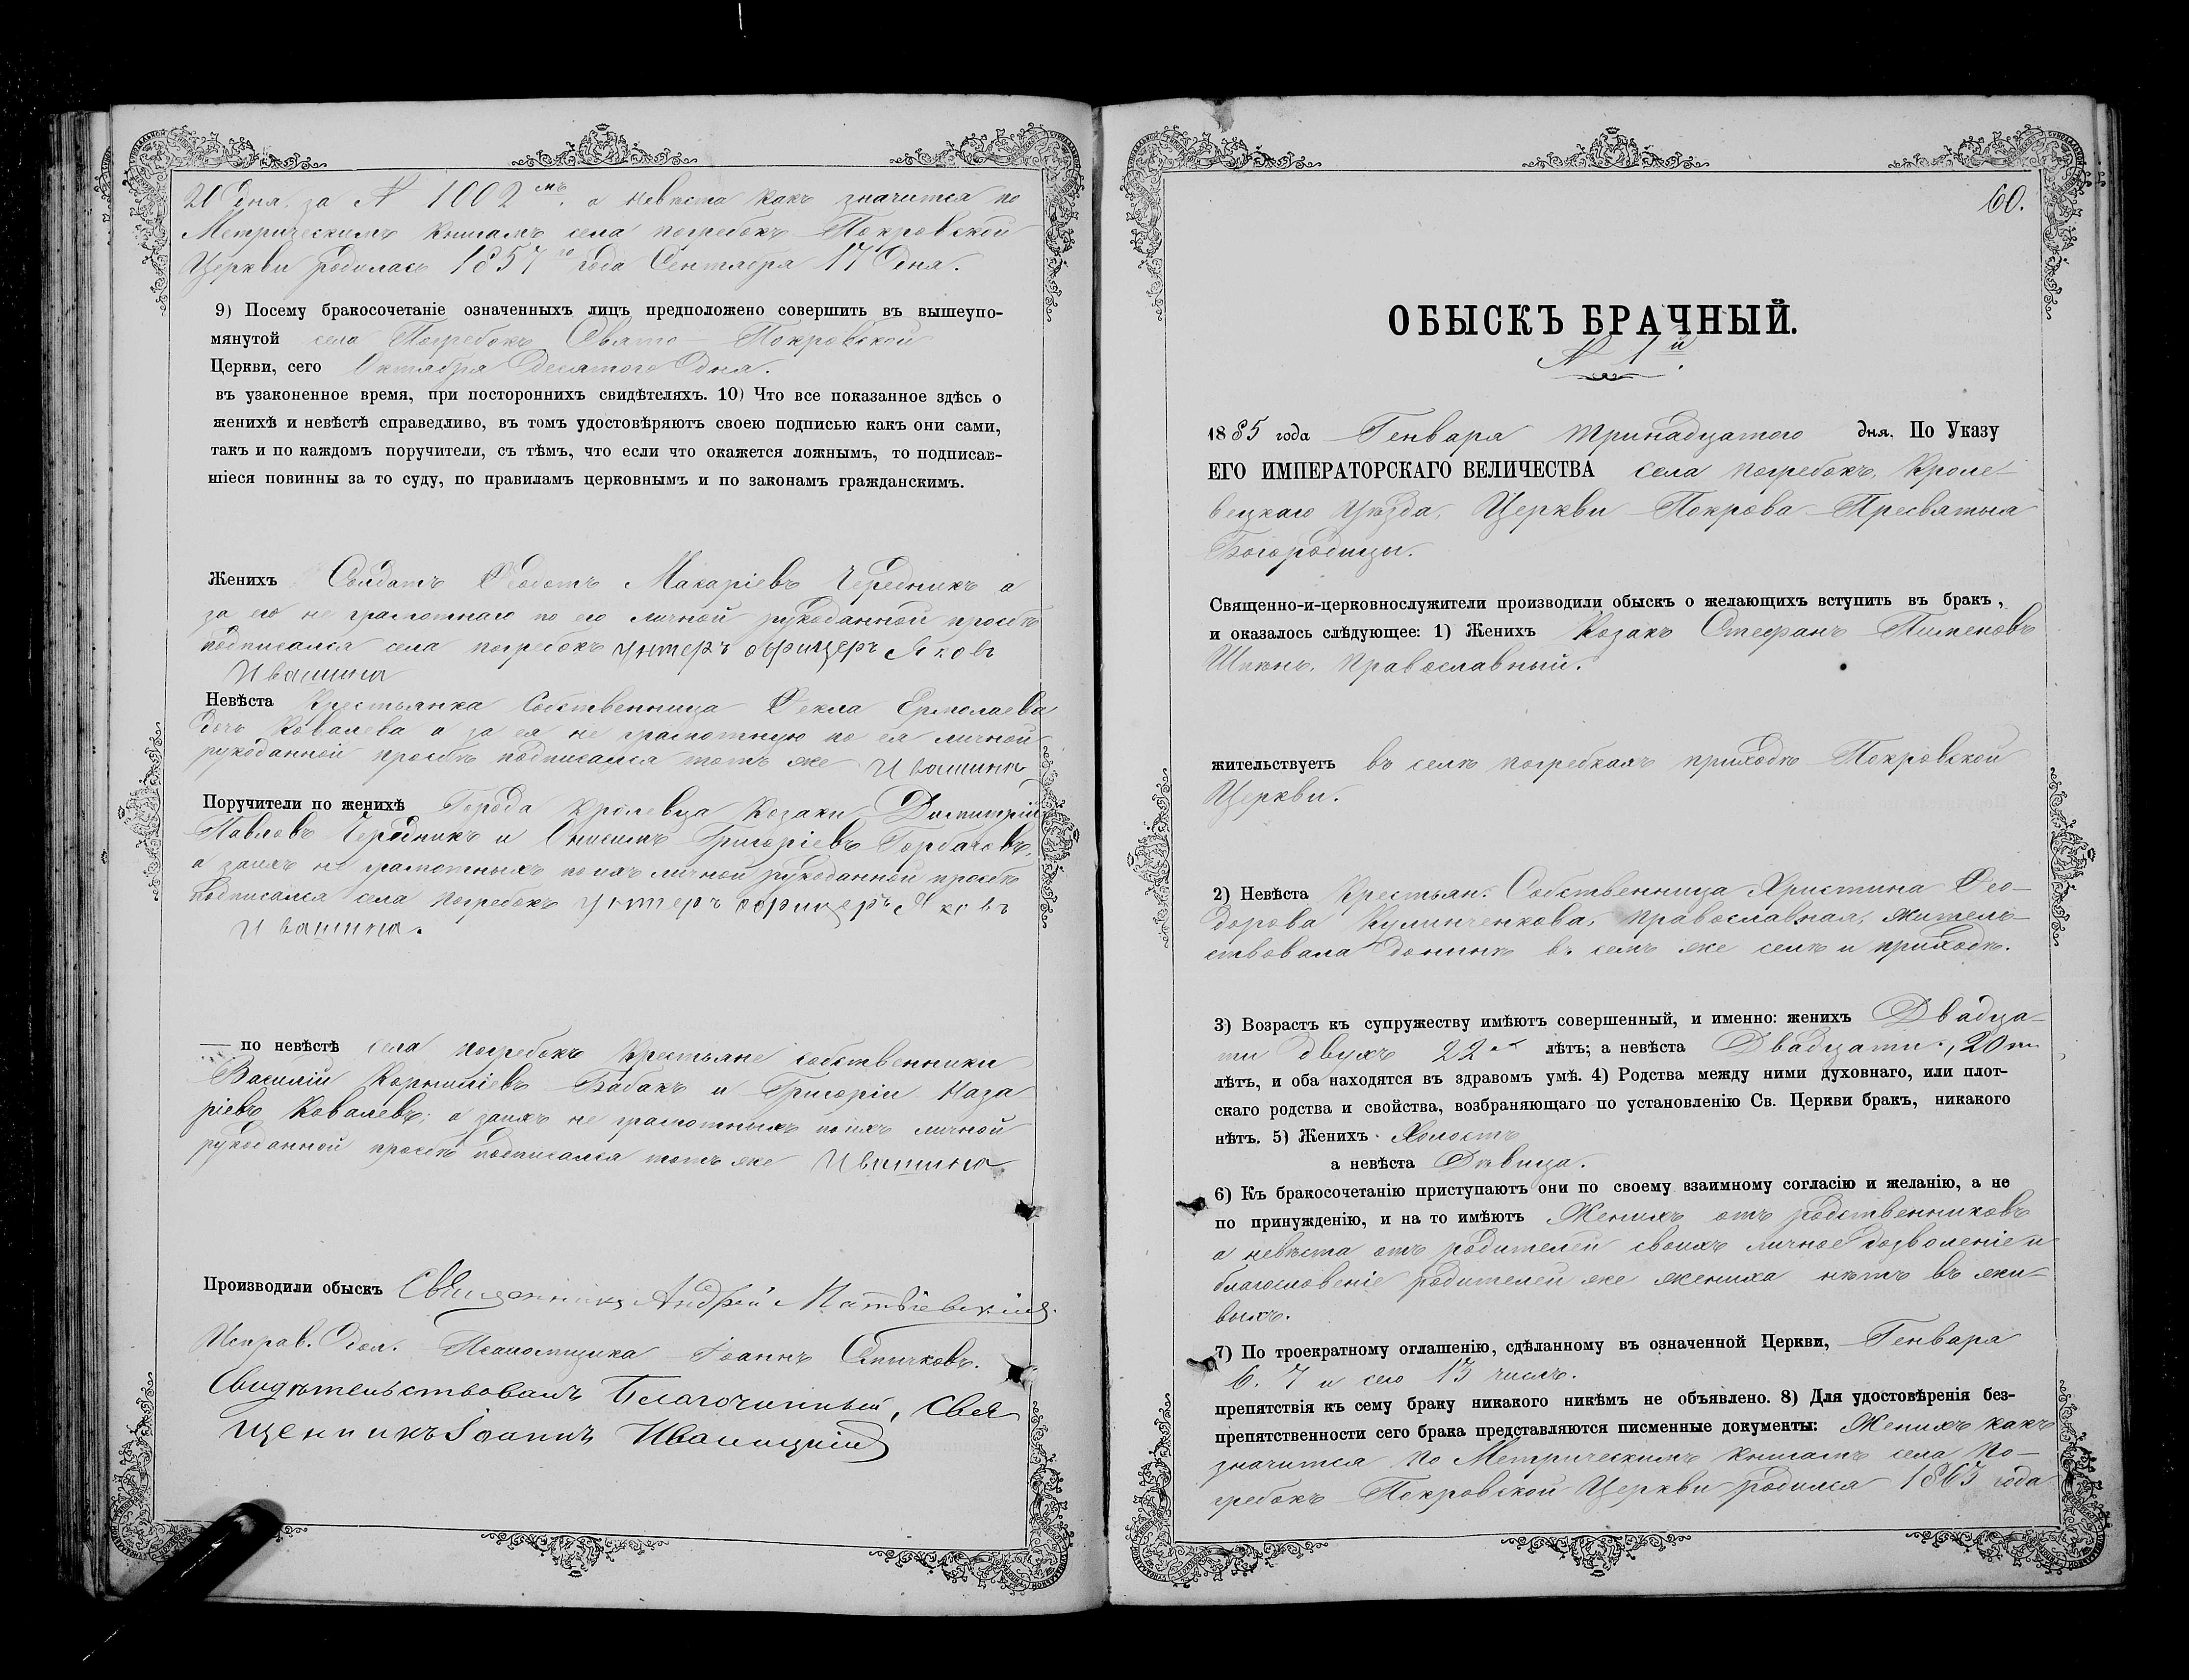 20 дня. за № 1002мъ. а невѣста какъ значится по
Метрическимъ книгамъ села погребокъ Покровской
Церкви родилась 1857го года Сентября 17 дня.
9) Посему бракосочетаніе означенныхъ лицъ предположено совершить въ вышеупо-
мянутой села Погребокъ Свято-Покровской
Церкви, сего Октября Десятого дня.
въ узаконенное время, при постороннихъ свидѣтеляхъ. 10) Что все показанное здѣсь о
женихѣ и невѣстѣ справедливо, въ томъ удостовѣряютъ своею подписью какъ они сами,
такъ и по каждомъ поручители, съ тѣмъ, что если что окажется ложнымъ, то подписав-
шіеся повинны за то суду, по правиламъ церковнымъ и по законамъ гражданскимъ.
Женихъ Солдатъ Федотъ Макаріевъ Чередникъ а
за его не грамотнаго по его личной рукоданной просьбѣ
подписался села погребокъ унтеръ офицеръ Яковъ
Ивашина
Невѣста Крестьянка Собственница Фекла Ермолаева
дочь Ковалева а за ея не грамотную по ея личной
рукоданной просьбѣ подписался тотъ же Ивашина
Поручители по женихѣ Города Кролевца Козаки Димитрій
Павловъ Чередникъ и Онисимъ Григоріевъ Горбачовъ,
а заихъ не грамотныхъ поихъ личной рукоданной просьбѣ
подписался села Погребокъ унтеръ офицеръ Яковъ
Ивашина.
— по невѣстѣ села погребокъ Крестьяне собственники
Василій Корниліевъ Бабакъ и Григорій Наза
ріевъ Ковалевъ; а заихъ не грамотныхъ поихъ личной
рукоданной просьбѣ подписался тотъ же Ивашина.
Производили обыскъ Священникъ Андрей Матвіевскій.
Исправ. Дол. Псаломщика Іоаннъ Смычковъ.
Свидѣтельствовалъ Благочинный, Свя
щенникъ Іоаннъ Иваницкій
60.
ОБЫСКЪ БРАЧНЫЙ.
№ 1й.
1885 года Генваря тринадцатого дня. По Указу
ЕГО ИМПЕРАТОРСКАГО ВЕЛИЧЕСТВА села погребокъ, Кроле-
вецкаго Уѣзда, Церкви Покрова Пресвятыя
Богородицы.
Священно-и-церковнослужители производили обыскъ о желающихъ вступить въ бракъ,
и оказалось слѣдующее: 1) Женихъ Козакъ Стефанъ Пименовъ
православный.
жительствуетъ въ селѣ погребкахъ приходѣ Покровской
Церкви.
2) Невѣста Крестьян. Собственница Христина Фео-
дорова Кулинченкова, православная, житель-
ствовала донынѣ въ семъ же селѣ и приходѣ.
3) Возрастъ къ супружеству имѣютъ совершенный, и именно: женихъ Двадца-
ти двухъ 22хъ лѣтъ; а невѣста Двадцати, 20ти
лѣтъ, и оба находятся въ здравомъ умѣ. 4) Родства между ними духовнаго, или плот-
скаго родства и свойства, возбраняющаго по установленію Св. Церкви бракъ, никакого
нѣтъ. 5) Женихъ Холостъ
а невѣста Дѣвица.
6) Къ бракосочетанію приступаютъ они по своему взаимному согласію и желанію, а не
по принужденію, и на то имѣютъ Женихъ отъ родственниковъ
а невѣста отъ родителей своихъ личное дозволеніе и
благословеніе родителей же жениха нѣтъ въ жи-
выхъ.
7) По троекратному оглашенію, сдѣланному въ означенной Церкви, Генваря
6. 7 и сего 13 числъ.
препятствія къ сему браку никакого никѣмъ не объявлено. 8) Для удостовѣренія без-
препятственности сего брака представляются писменные документы: Женихъ какъ
значится по Метрическимъ книгамъ села По-
гребокъ Покровской Церкви родился 1863 года